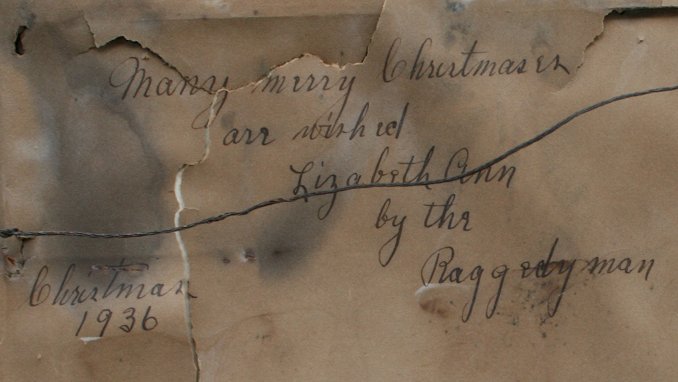 Many merry Christmases
are wished
Lizabeth Ann
by the
Raggedyman
Christmas
1936